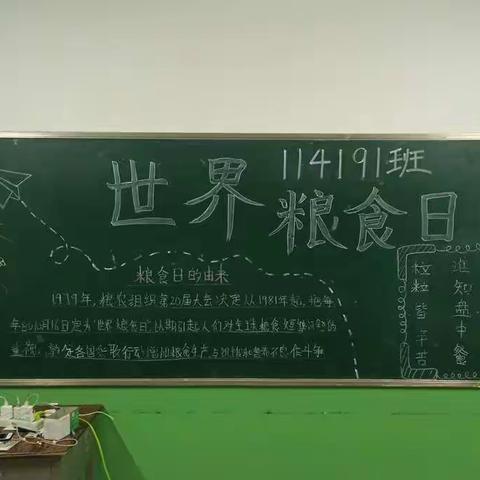 世界
114191班
粮食日
粮食日的由来
1979年,粮农组织第20届大会决定从1981年起,把每
年的10月16日定为"世界粮食日"以期引起人们对全球粮食短缺问题的
重视,
粮食生产,与
作斗争
谁知盘中餐
粒粒皆辛苦